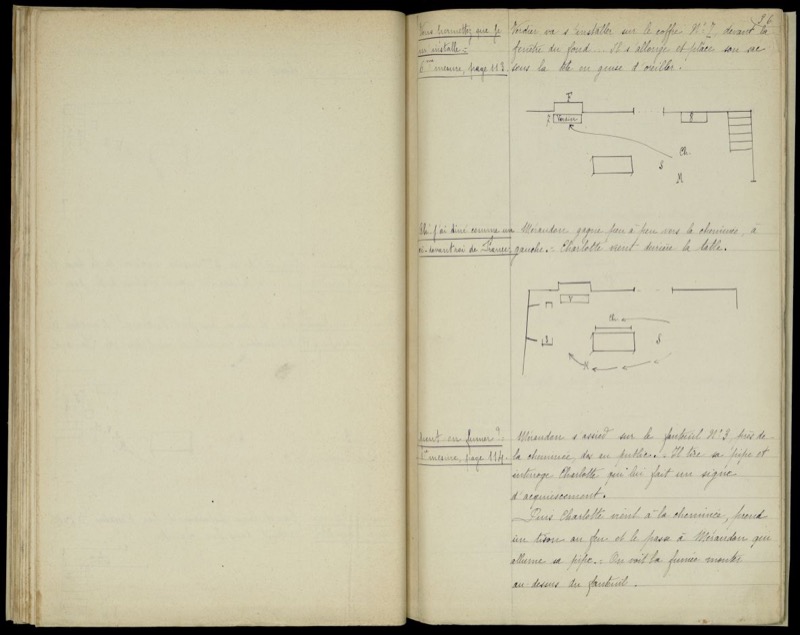 36
Vous permettez que je
m'installe =
6e mesure, page 113.
Verdier va s'installer sur le coffre No 7, devant la
fenêtre du fond. Il s'allonge et place son sac
sous la tête en guise d'oreiller.
F
7 Verdier
8
Ch.
S
M
j'ai dîné comme un
ci-devant roi de France,
Mérandon gagne peu à peu vers la cheminée, à
gauche. = Charlotte vient derrière la table.
V
Ch.
S
3
M
peut on fumer?
mesure, page 114.
Mérandon s'assied sur le fauteuil No 3, près de
la cheminée, dos au public. Il tire sa pipe et
interroge Charlotte qui lui fait un signe
d'acquiescement.
Puis Charlotte vient à la cheminée, prend
un tison au feu et le passe à Mérandon qui
allume sa pipe. = On voit la fumée monter
au dessus du fauteuil.